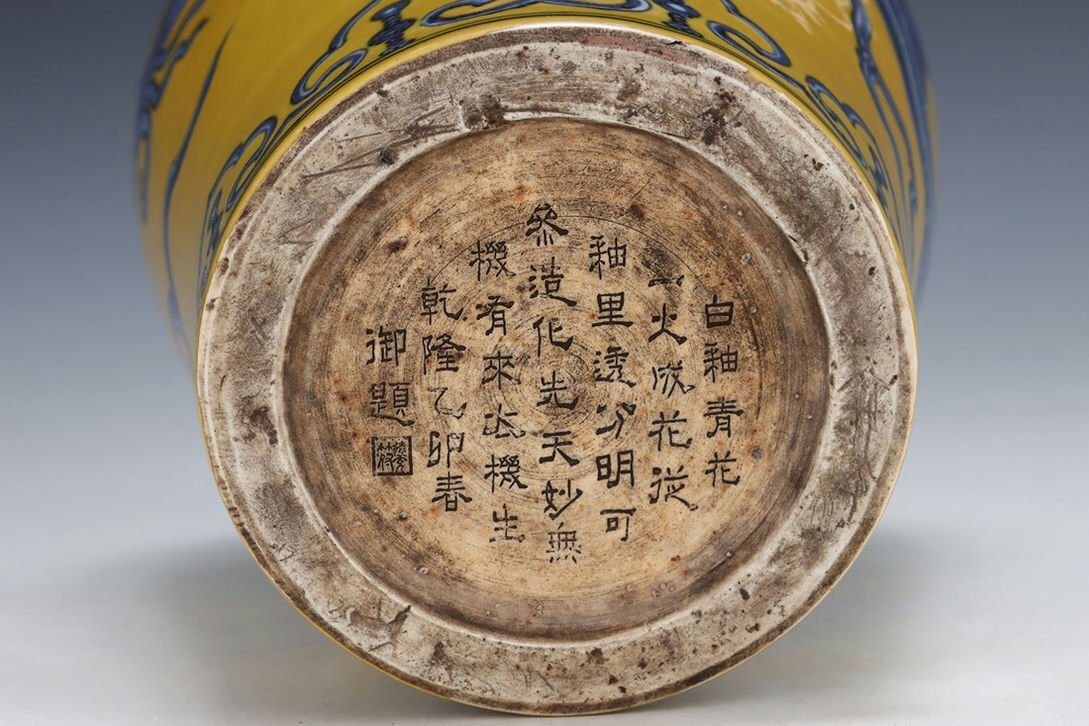 白釉青花
一火成花從
釉里透分明可
叅造化先天妙無
機肴來太機生
乾隆乙卯春
御題